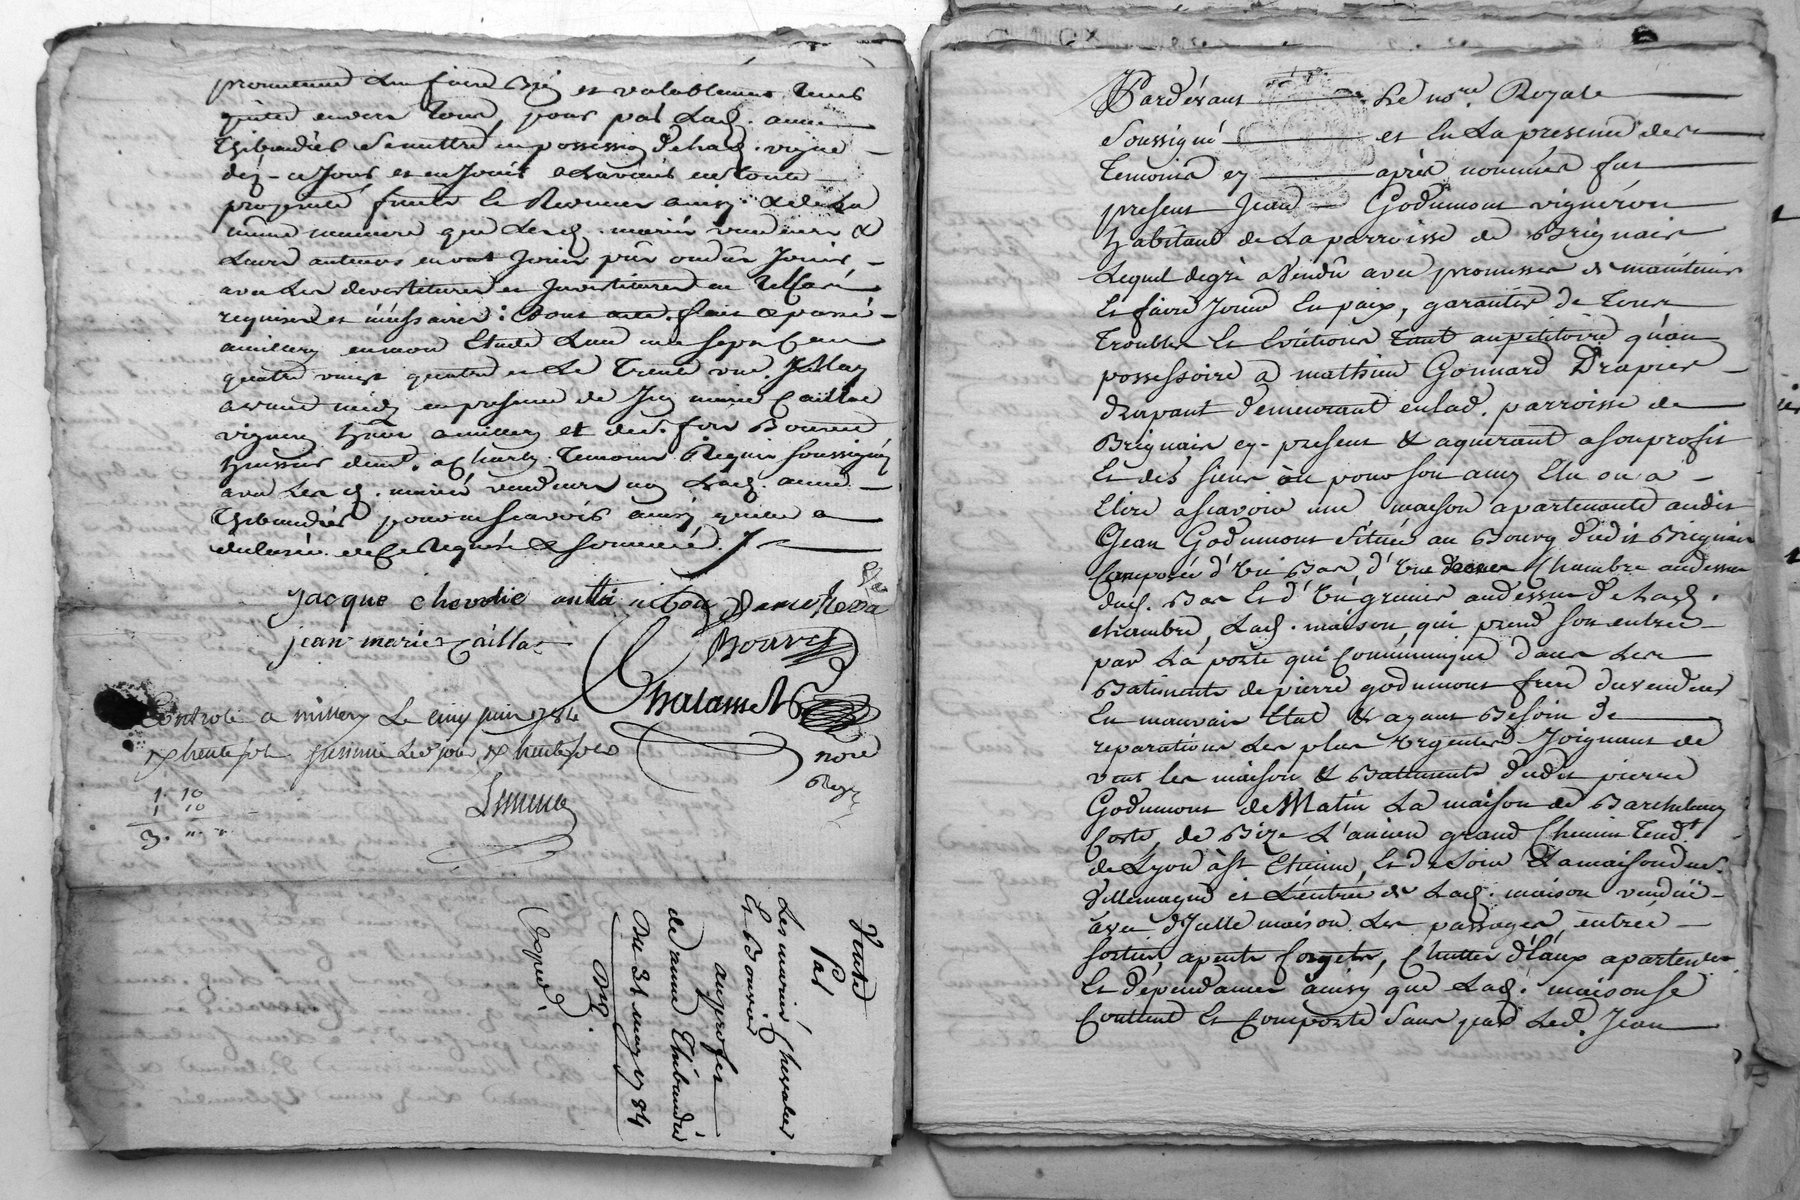 promettent de faire et valablement tenir
envers tous, pour par lad. anne
Thibaudier se mettre en possession de lad. vigne
dez-ce jour et en jouir en toute
proprieté
même maniere que lesd. mariés vendeurs &
leurs auteurs en ont joui pû ou dû jouir
avec les devestitures et investitures en tel cas
requises et nécessaires: Dont acte. fait & passé
a millery en mon Etude L'an mil sept cent
quatre vingt quatre et Le Trente un may
avant midy en presence de Jean marie Caillat
vigneron a millery et de Bouvier
huissier dem.t a Charly Temoins Requis soussignés
avec Lesd. mariés vendeurs non Lad. anne
Thibaudier pour ne sçavoir ainsy qu'elle a
déclaré de ce Requise & sommée ./.
jacque chevalie
jean marie Caillat
Bouvier
Chalamel
no.re
Controlé a millery Le cinq juin 1784
1. 10
1 10
3.
Vente
Par
Les mariés Chevalier
Et Bouvier
au profit
de anne Thibaudier
Du 31 may 1784
Expedié
Pardevant Le no.re Royale
Soussigné et En La presence des
Temoins cy après nommés fut
present Jean Godumont vigneron
habitant de La parroisse de Brignais
Lequel degré a Vendû avec promesses de maintenir
Et faire Jouir En paix, garantir de Tous
Troubles Et Evictions Tant au petitoire qu'au
possessoire a mathieu Gonnard Drapier
Drapant demeurant en lad. parroisse de
Brignais cy-present & aquerant a son profit
Et des siens où pour son amy Elu ou a
Elire asçavoir une maison apartenante audit
Jean Godumont située au Bourg dudit Brignais
Composée d'un Bas d'une Chambre au dessus
dud. Bas Et d'un grenier au dessus de Lad.
chambre, Lad. maison, qui prend son entrée
par La porte qui Communique dans Les
Batiments de pierre godumont frere du vendeur
En mauvais Etat & ayant Besoin de
reparations Les plus urgentes Joignant de
vent les maison & Battiments dudit pierre
Godumont de Matin La maison de Barthelemy
Coste, de Bize L'ancien grand Chemin Tend.t
de Lyon à St Etienne, Et de Soir La maison du s.
Villemagne et L'entrée de Lad. maison venduë
avec d'Icelle maison Les passages, entrée
sorties, apents Corgets, Chuttes d'Eaux apartenances
Et dépendances ainsy que Lad. maison se
Contient Et Comporte sans par Led. Jean